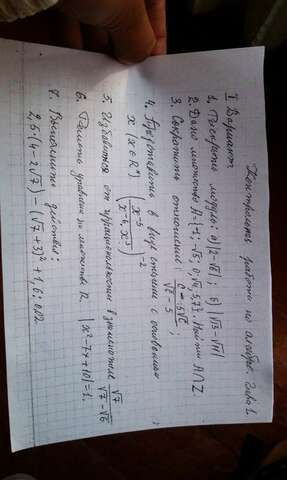 Контрольная работа по алгебре. Глава 1.
I Вариант
1. Раскрыть модуль: а) |2-√5|; б) |√13-√11|
2. Дано множество A = {-7; -√5; 0; √9; 5,7}; Найти A∩Z
3. Сократить отношение: ; √c - 5
4. Представить в виде степени с основанием
x (x∈R⁺)
5. Избавиться от иррациональности в знаменателе √7 / √7-√6
6. Решить уравнение на множестве R. |x²-7x+10|=1.
7. Выполнить действия:
2,6:(4-2√7) - (√7+2)² + 1,6:0,2